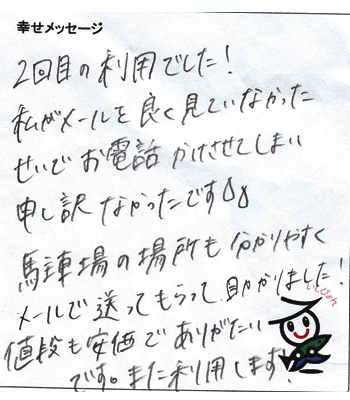 幸せメッセージ
2回目の利用でした！
私がメールを良く見ていなかった
せいでお電話かけさせてしまい
申し訳なかったです
駐車場の場所も分かりやすく
メールで送ってもらって助かりました！
値段も安価でありがたい
です。また利用します！